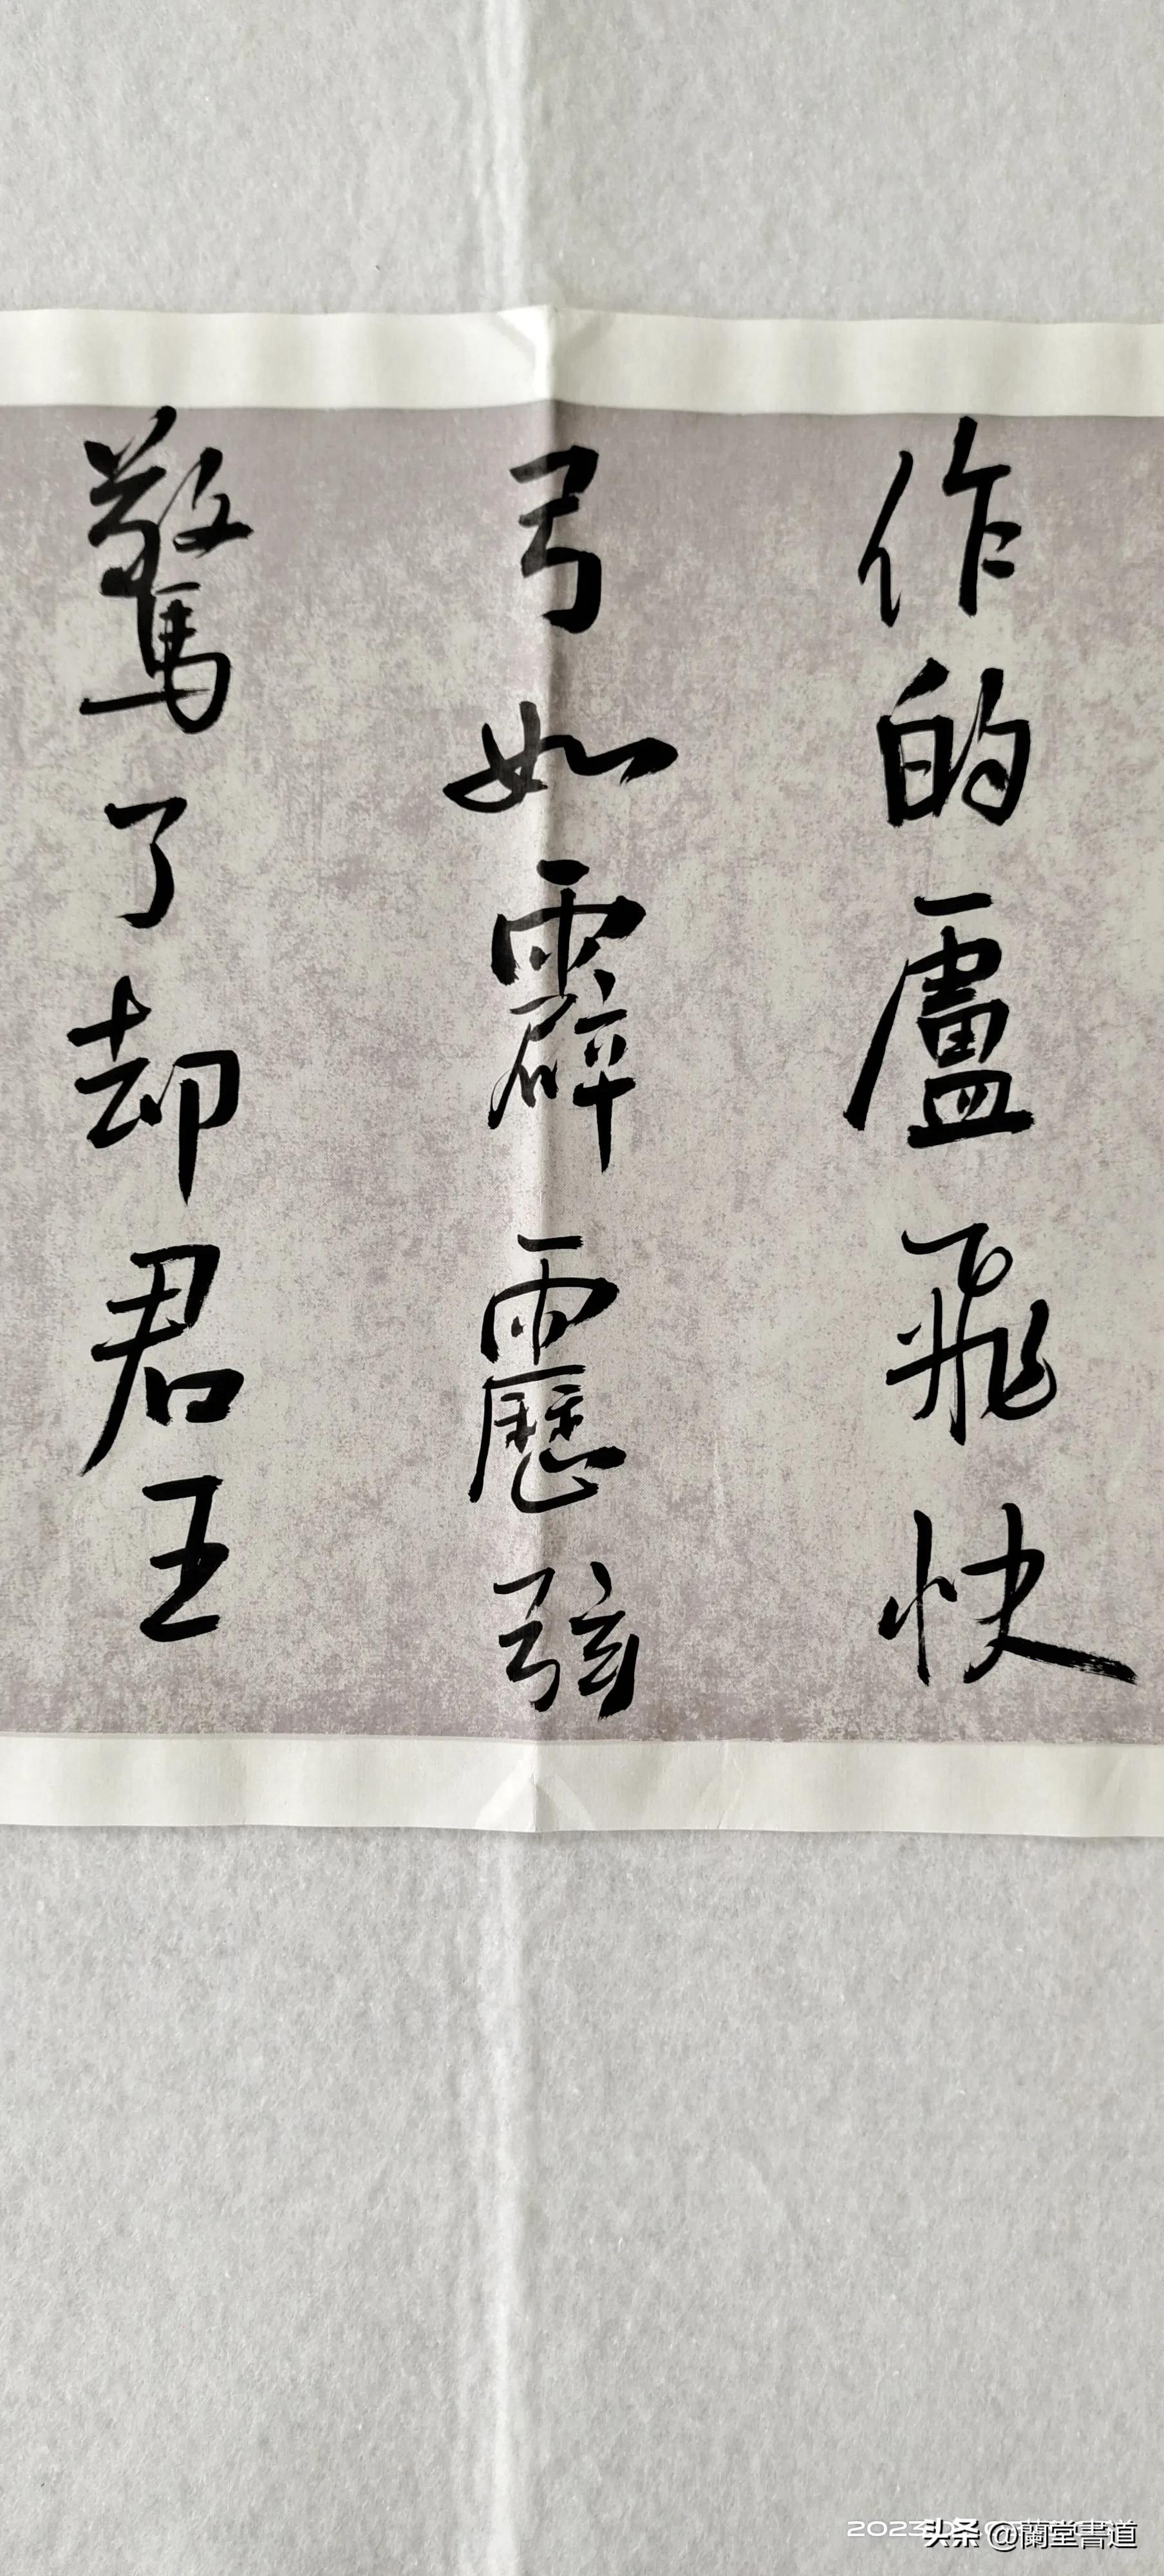 作的盧飛快
弓如霹靂弦
驚了却君王
头条 @蘭堂書道